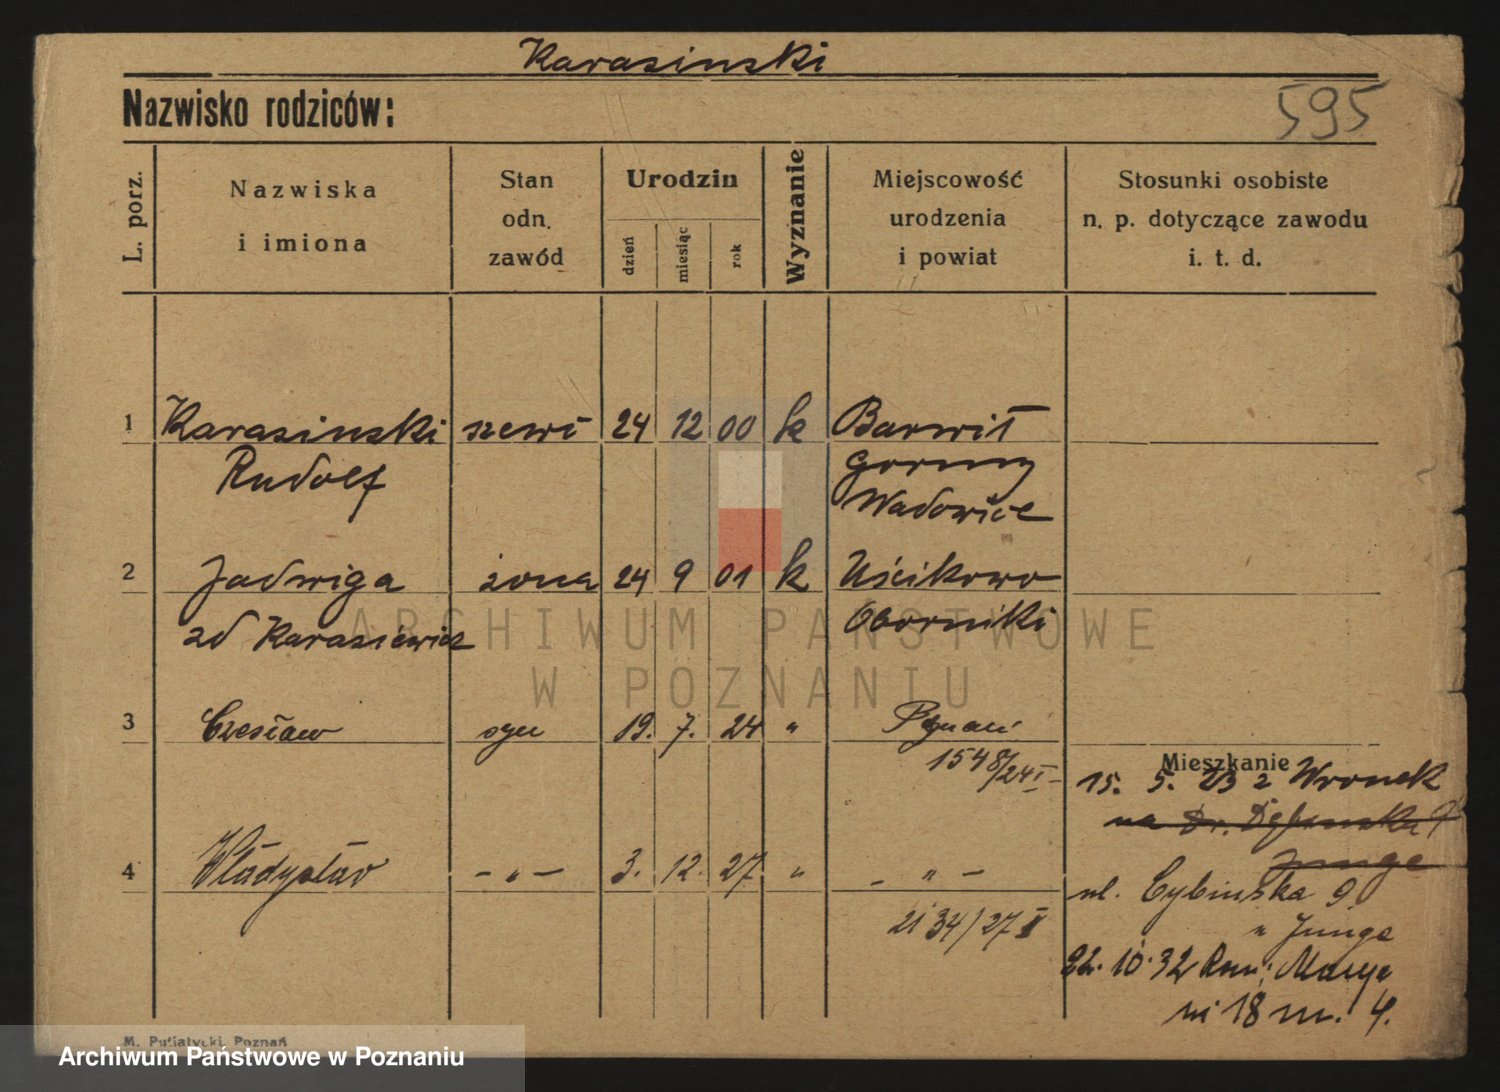 Karasinski
Nazwisko rodziców:
595
L. porz.
Nazwiska
i imiona
Stan
odn.
zawód
Urodzin
dzień
miesiąc
rok
Wyznanie
Miejscowość
urodzenia
i powiat
Stosunki osobiste
n. p. dotyczące zawodu
i. t. d.
1 Karasinski szewc 24 12 00 k Barwit
Rudolf Gorny
Wadowice
2 Jadwiga żona 24 9 01 k Uścikowo
zd Karasiewicz Oborniki
3 Czesław syn 19. 7. 24 " Poznań
1548/24 I
Mieszkanie
15. 5. 23 z Wronek
na Dr. Dębinska 9
Junge
4 Władysław - " - 3. 12. 27 " - " -
ul. Cybinska 9
2134/27 II
" Junge
22. 10. 32 Ran. Masye
18 m. 4.
M. Putiatycki, Poznań
ARCHIWUM PAŃSTWOWE
W POZNANIU
Archiwum Państwowe w Poznaniu